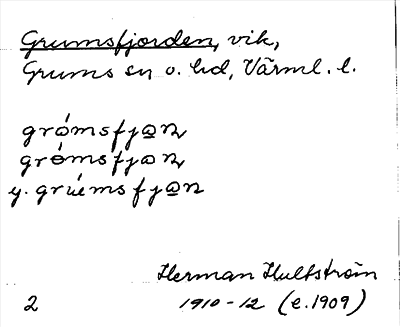 Grumsfjorden, vik,
Grums sn o. hd, Värml. l.
gró̤msfjo̲n
grɵ́msfjon
y. grúemsfjo̲n
Herman Hultström
2 1910-12 (e. 1909)